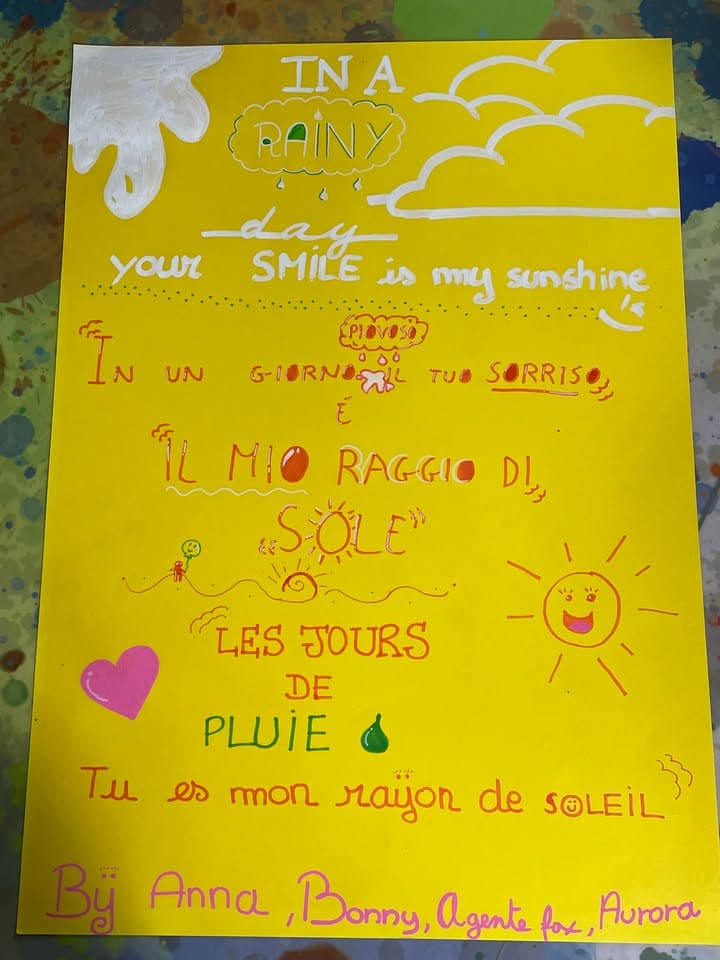 IN A
RAINY
day
your SMILE is my sunshine
PIOVOSO
"IN UN GIORNO IL TUO SORRISO"
É
"IL MIO RAGGIO DI"
"SOLE"
"LES JOURS
DE
PLUIE
Tu es mon raÿon de SOLEIL"
Bÿ Anna, Bonny, Agente fox, Aurora